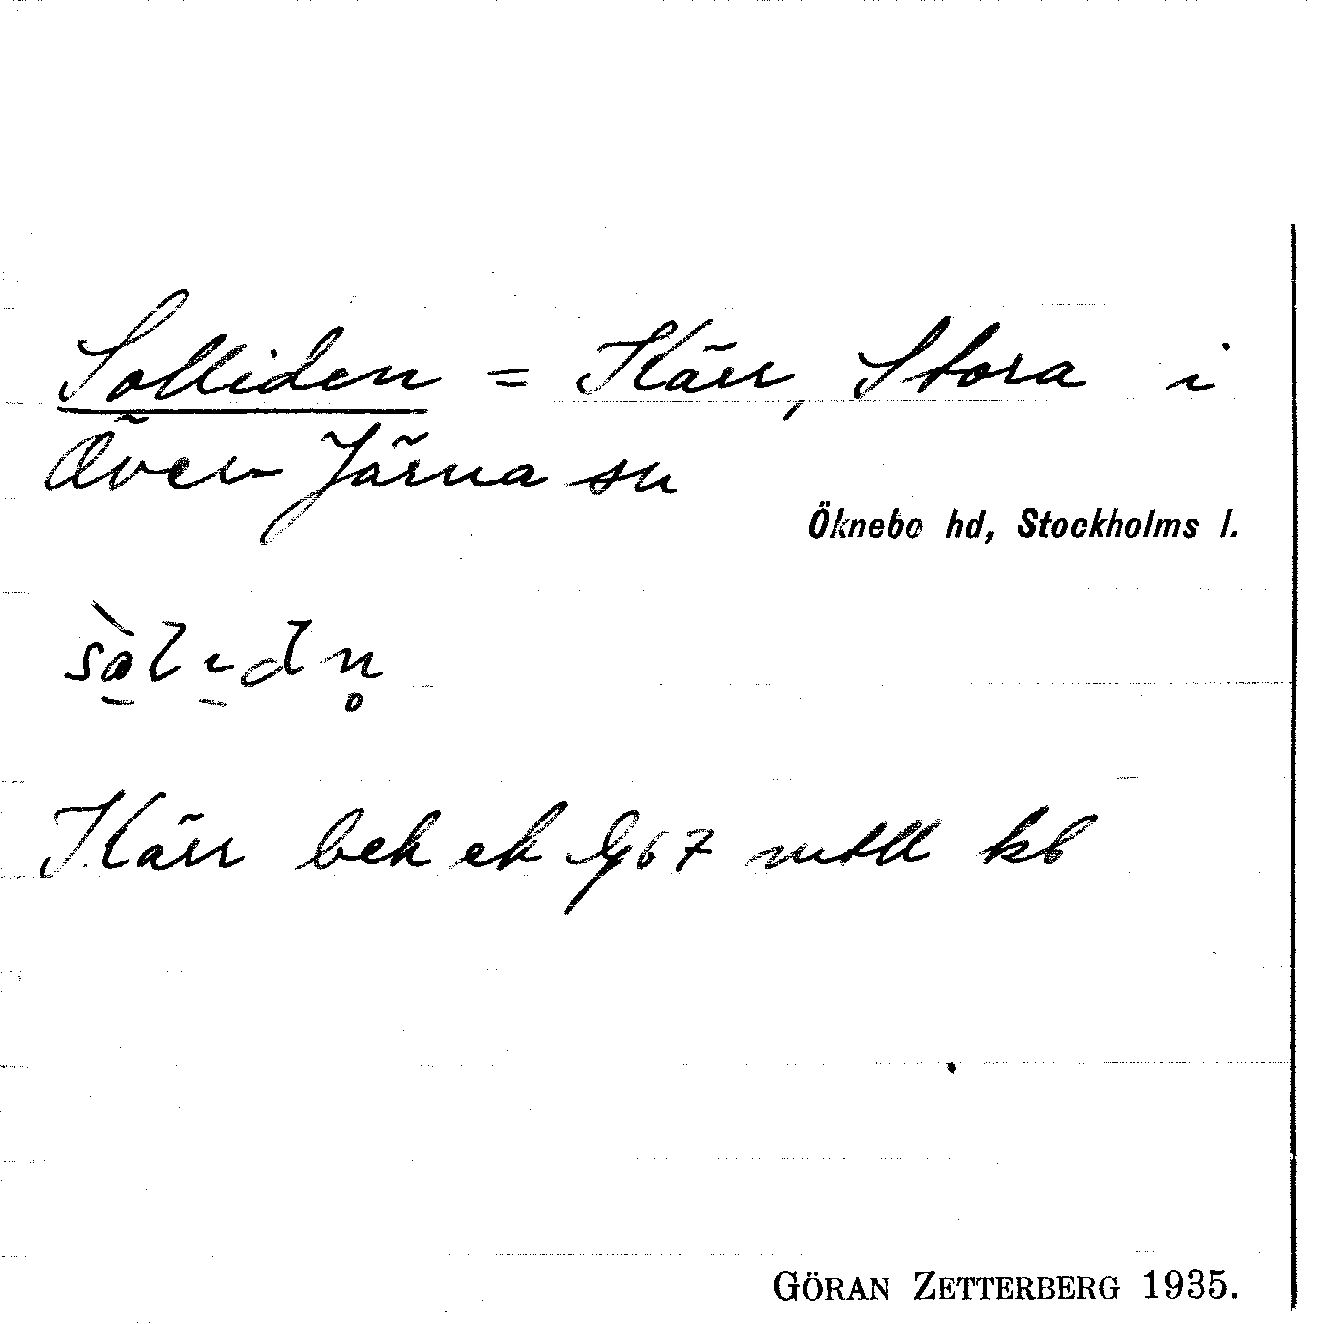 Solliden = Kärr, Stora i
Över Järna sn
Öknebo hd, Stockholms l.
Kärr bek ek 967 mtll kb
GÖRAN ZETTERBERG 1935.